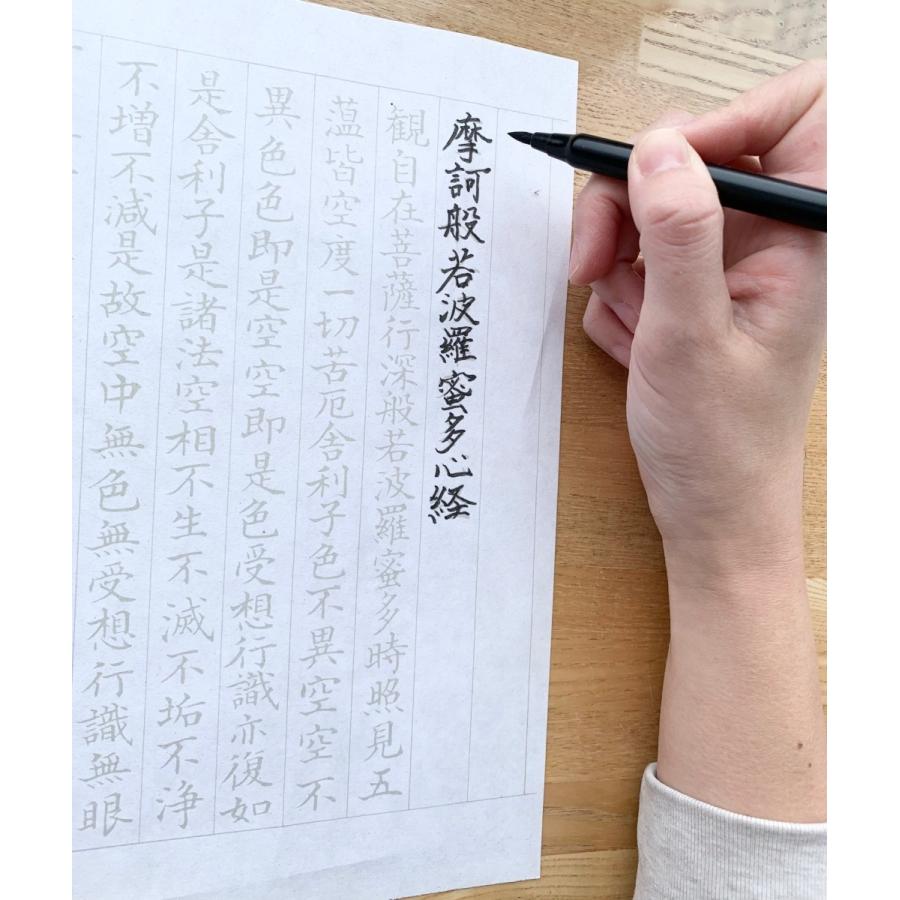 摩訶般若波羅蜜多心経
観自在菩薩行深般若波羅蜜多時照見五
蘊皆空度一切苦厄舎利子色不異空空不
異色色即是空空即是色受想行識亦復如
是舎利子是諸法空相不生不滅不垢不浄
不増不減是故空中無色無受想行識無眼